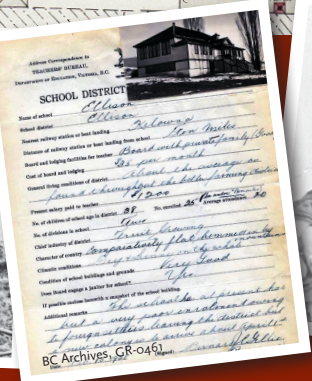 Address Correspondence to
TEACHERS' BUREAU,
DEPARTMENT OF EDUCATION, VICTORIA, B.C.
SCHOOL DISTRICT
Name of school Ellison
School district. Ellison
Nearest railway station or boat landing. Kelowna
Distance of railway station or boat landing from school Ten Miles
Board and lodging facilities for teacher Board with private family (Good
Cost of board and lodging $35 per month
General living conditions of district. About the average as
found throughout the better farming
Present salary paid to teacher $1200
No. of children of school age in district 38 No. enrolled. 25 Average attendance. 20
No. of divisions in school
Chief industry of district Fruit Growing
Character of country. Comparatively flat hemmed in by
Climatic conditions Dry
Condition of school buildings and grounds Very Good
Does Board engage a janitor for school? Yes
If possible enclose herewith a snapshot of the school building.
Additional remarks The school has at present
but a very poor enrolment owing
to foreign settlers leaving the district but
(Signed)
BC Archives, GR-0461